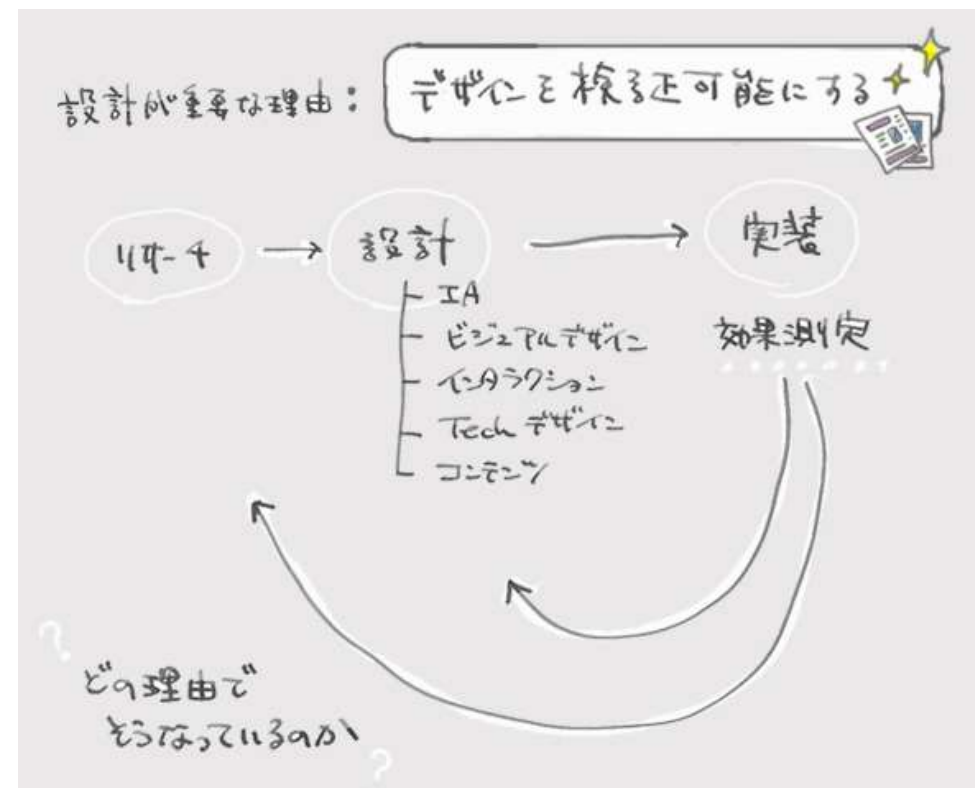 設計が重要な理由：
デザインを検証可能にする
リサーチ → 設計 → 実装
IA
ビジュアルデザイン
インタラクション
Techデザイン
コンテンツ
効果測定
?
どの理由で
そうなっているのか
?